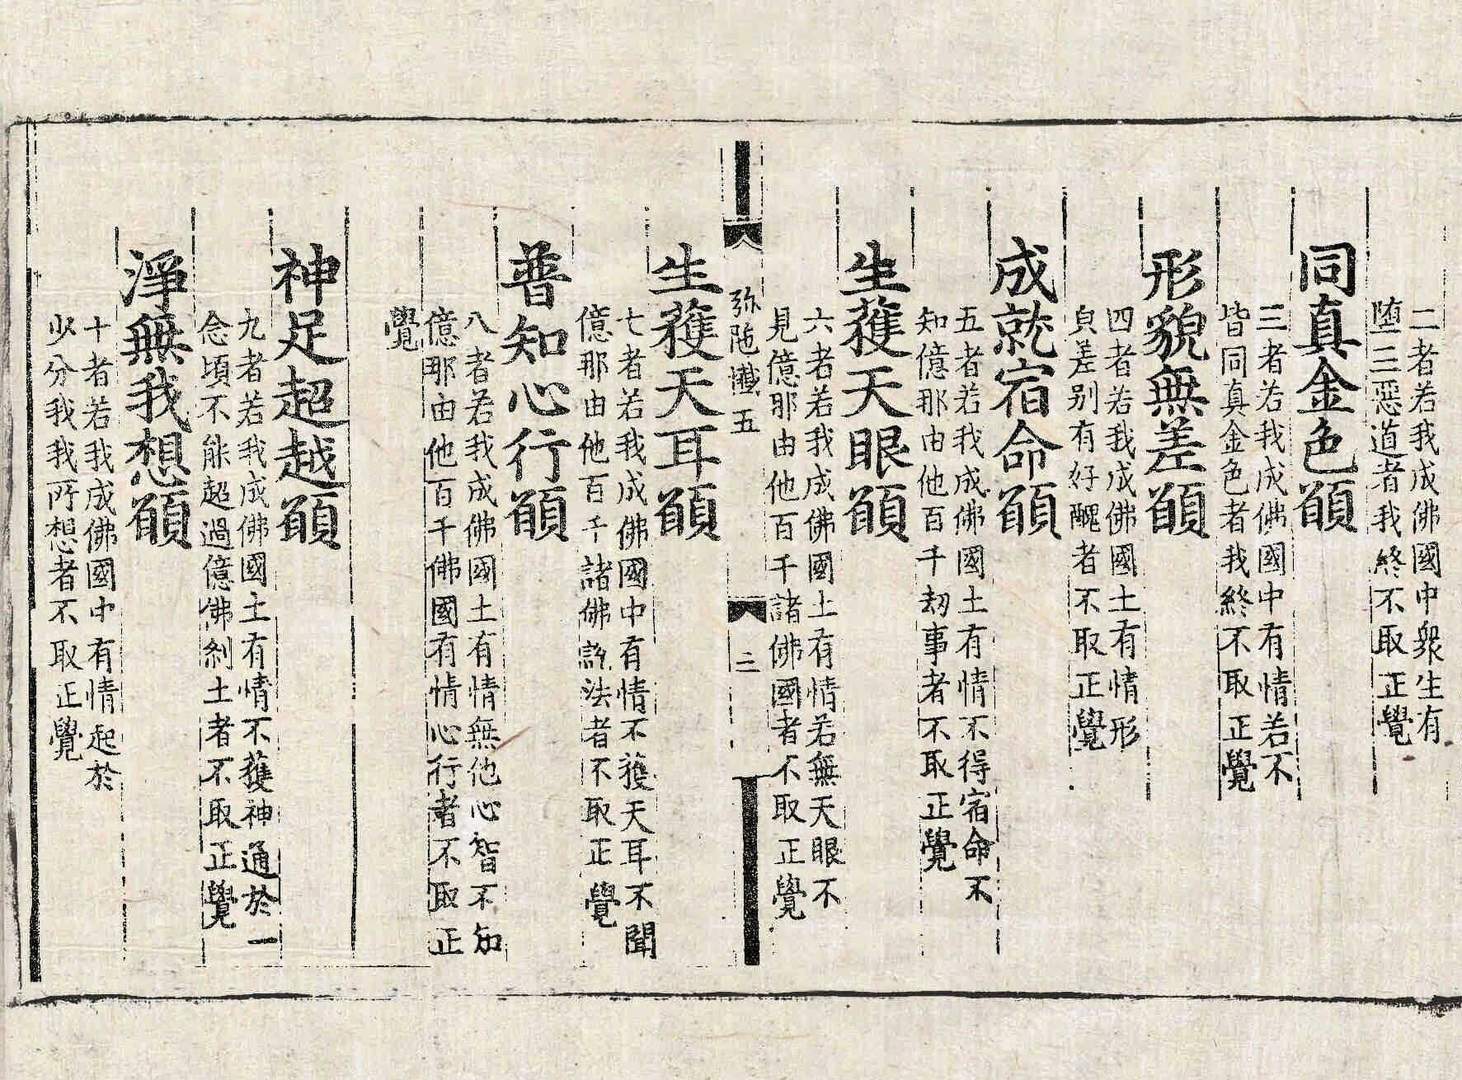 二者若我成佛國中衆生有
堕三惡道者我終不取正覺
同真金色願
三者若我成佛國中有情若不
皆同真金色者我終不取正覺
形貌無差願
四者若我成佛國土有情形
皃差别有好醜者不取正覺
成就宿命願
五者若我成佛國土有情不得宿命不
知億那由他百千劫事者不取正覺
生獲天眼願
六者若我成佛國土有情若無天眼不
見億那由他百千諸佛國者不取正覺
弥陁懴五
三
生獲天耳願
七者若我成佛國中有情不獲天耳不聞
億那由他百千諸佛說法者不取正覺
普知心行願
八者若我成佛國土有情無他心智不知
億那由他百千佛國有情心行者不取正
覺
神足超越願
九者若我成佛國土有情不獲神通於一
念頃不能超過億佛刹土者不取正覺
淨無我想願
十者若我成佛國中有情起於
少分我我所想者不取正覺